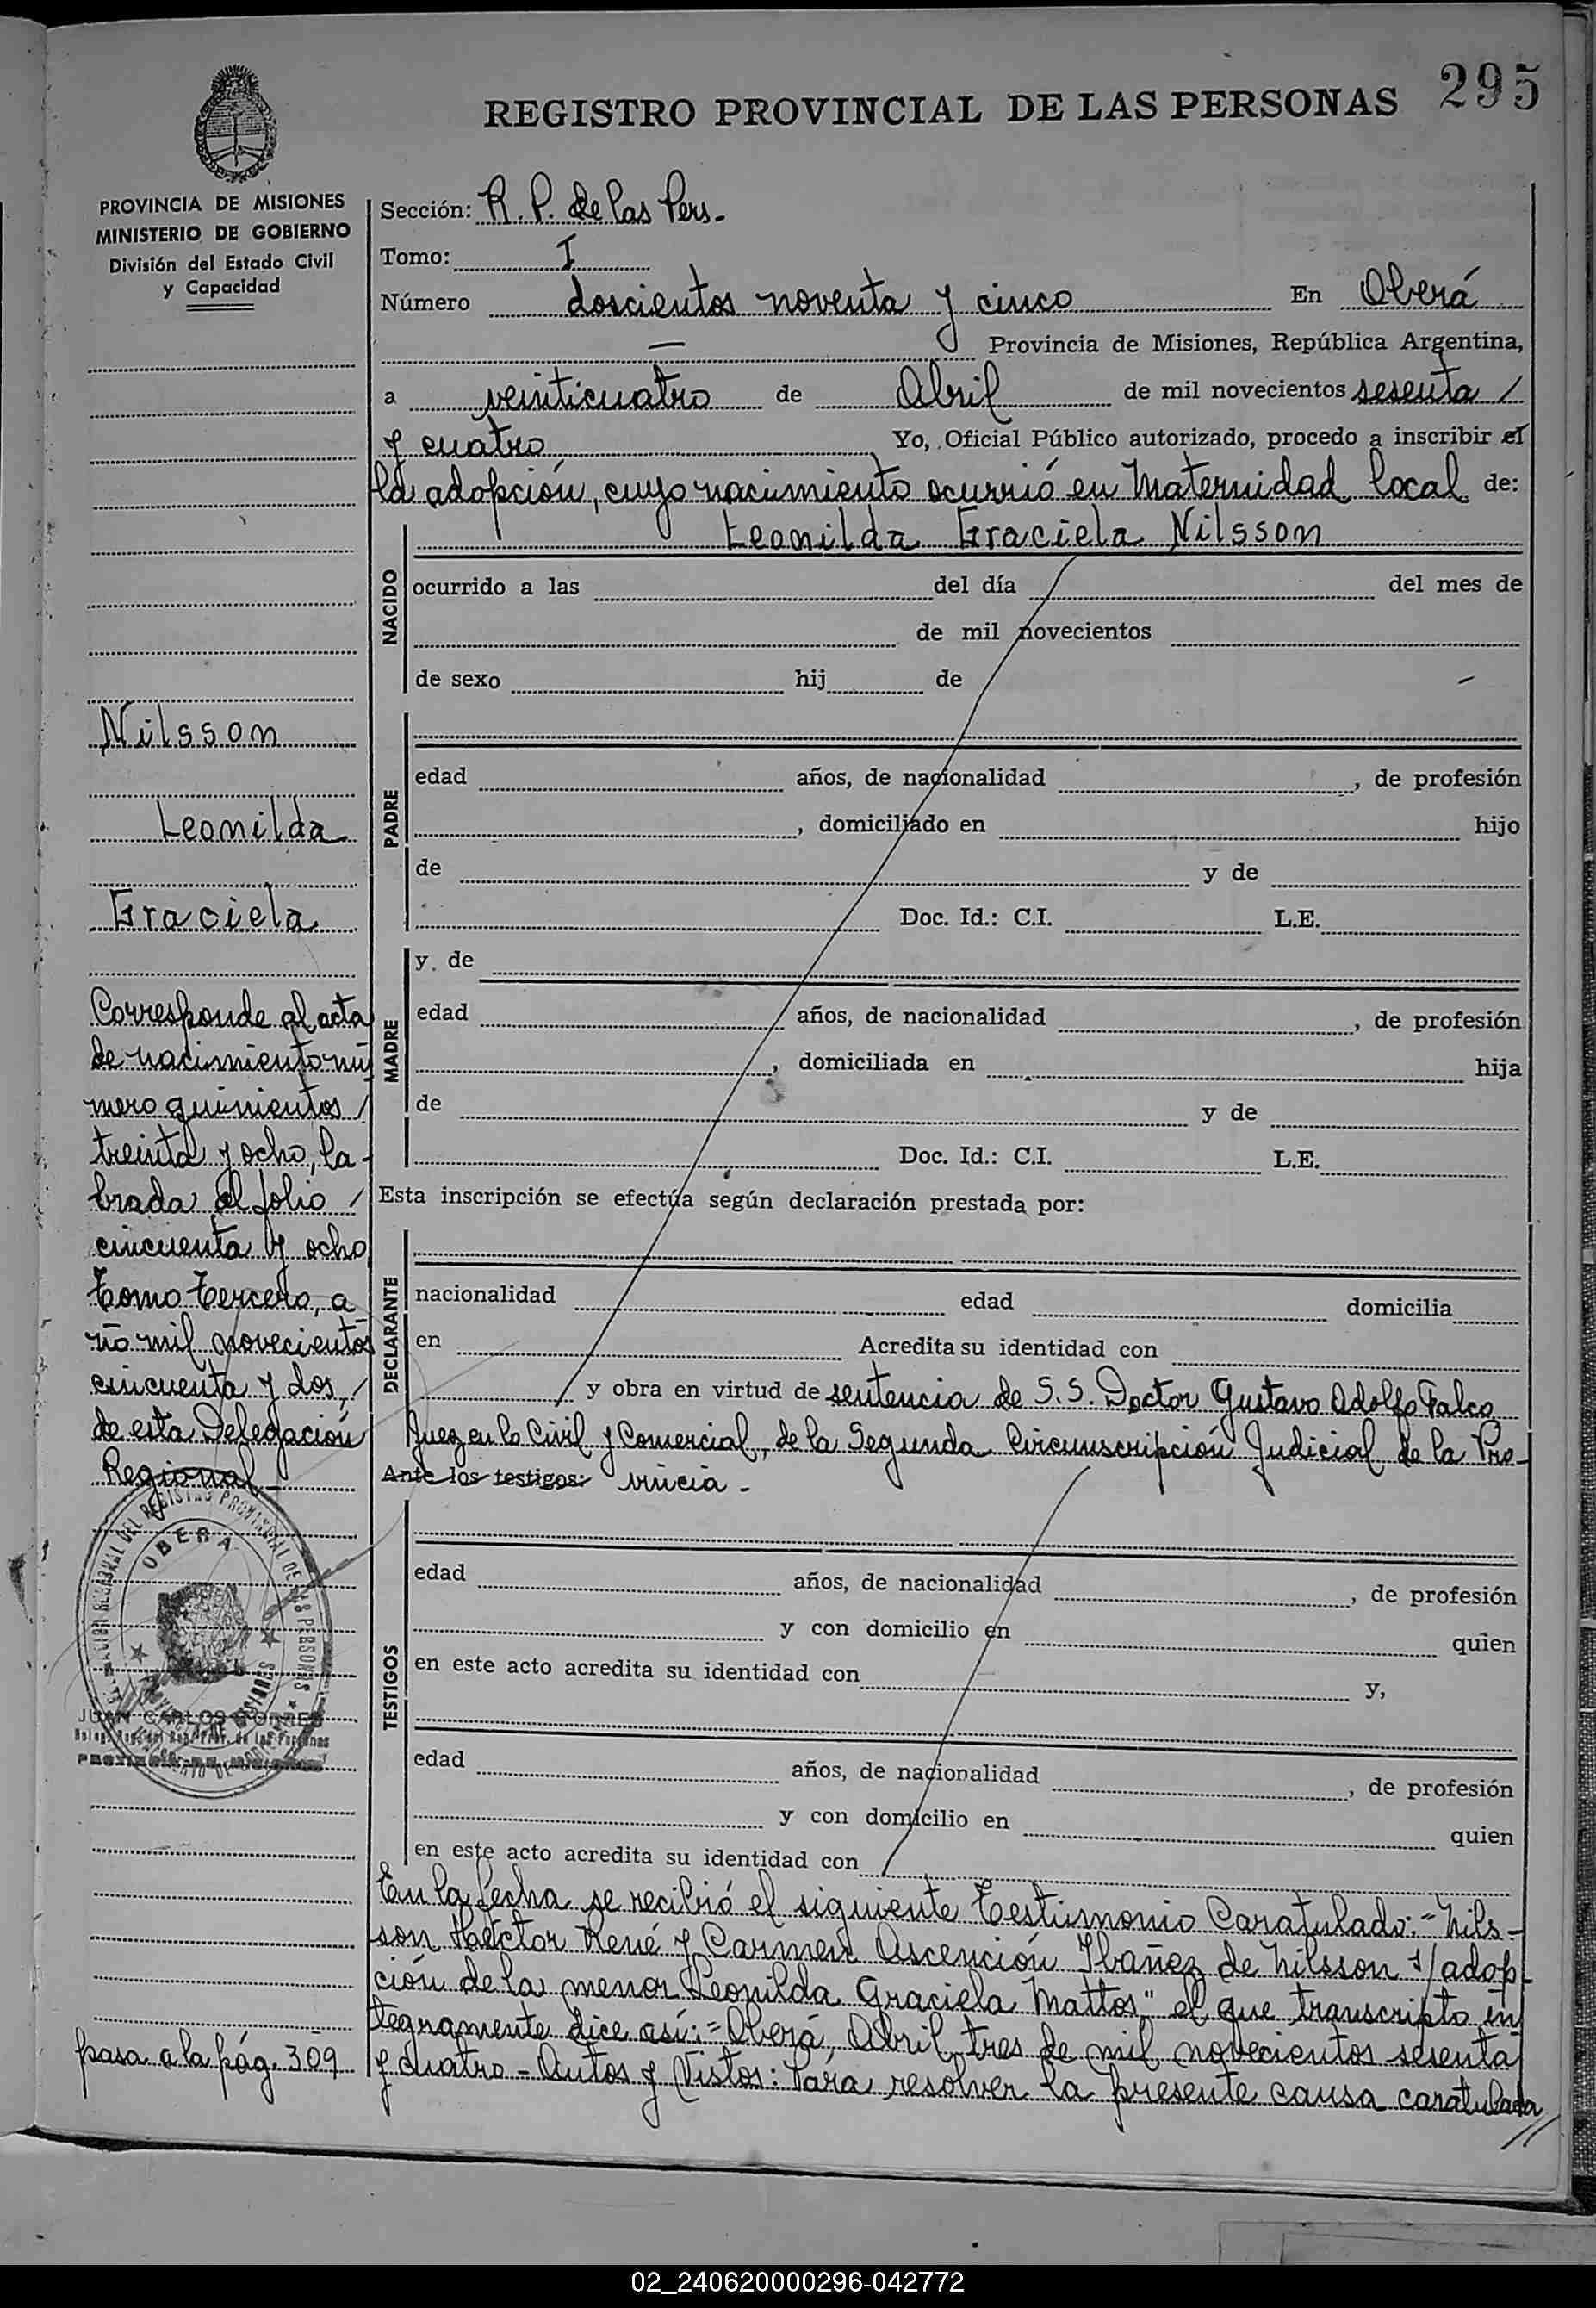 295
REGISTRO PROVINCIAL DE LAS PERSONAS
PROVINCIA DE MISIONES
MINISTERIO DE GOBIERNO
División del Estado Civil
y Capacidad
Nilsson
Leonilda
Graciela
Corresponde al acta
de nacimiento nú
mero quinientos /
treinta y ocho, la-
brada al folio /
cincuenta y ocho
Tomo tercero, a
ño mil novecientos
cincuenta y dos, /
de esta Delegación
Regional-
OBERÁ
JUAN CARLOS TORRES
pasa a la pág. 309
Sección: R. P. de las Pers.-
Tomo: I
Número doscientos noventa y cinco En Oberá
— Provincia de Misiones, República Argentina,
a veinticuatro de Abril de mil novecientos sesenta /
y cuatro Yo, Oficial Público autorizado, procedo a inscribir el
la adopción, cuyo nacimiento ocurrió en Maternidad local de:
Leonilda Graciela Nilsson
NACIDO
ocurrido a las del día del mes de
de mil novecientos
de sexo hij de
PADRE
edad años, de nacionalidad , de profesión
, domiciliado en hijo
de y de
Doc. Id.: C.I. L.E.
MADRE
y de
edad años, de nacionalidad , de profesión
, domiciliada en hija
de y de
Doc. Id.: C.I. L.E.
Esta inscripción se efectúa según declaración prestada por:
DECLARANTE
nacionalidad edad domicilia
en Acredita su identidad con
y obra en virtud de sentencia de S.S. Doctor Gustavo Adolfo Falco
Juez en lo Civil y Comercial, de la Segunda Circunscripción Judicial de la Pro-
Ante los testigos: vincia -
TESTIGOS
edad años, de nacionalidad , de profesión
y con domicilio en quien
en este acto acredita su identidad con y,
edad años, de nacionalidad , de profesión
y con domicilio en quien
en este acto acredita su identidad con
En la fecha se recibió el siguiente Testimonio Caratulado:="Nils-
son Héctor René y Carmen Ascención Ibañez de Nilsson s/ adop-
ción de la menor Leonilda Graciela Mattos," el que transcripto ín
tegramente dice así:=Oberá, Abril tres de mil novecientos sesenta
y cuatro - Autos y Vistos: Para resolver la presente causa caratulada
//
02_240620000296-042772